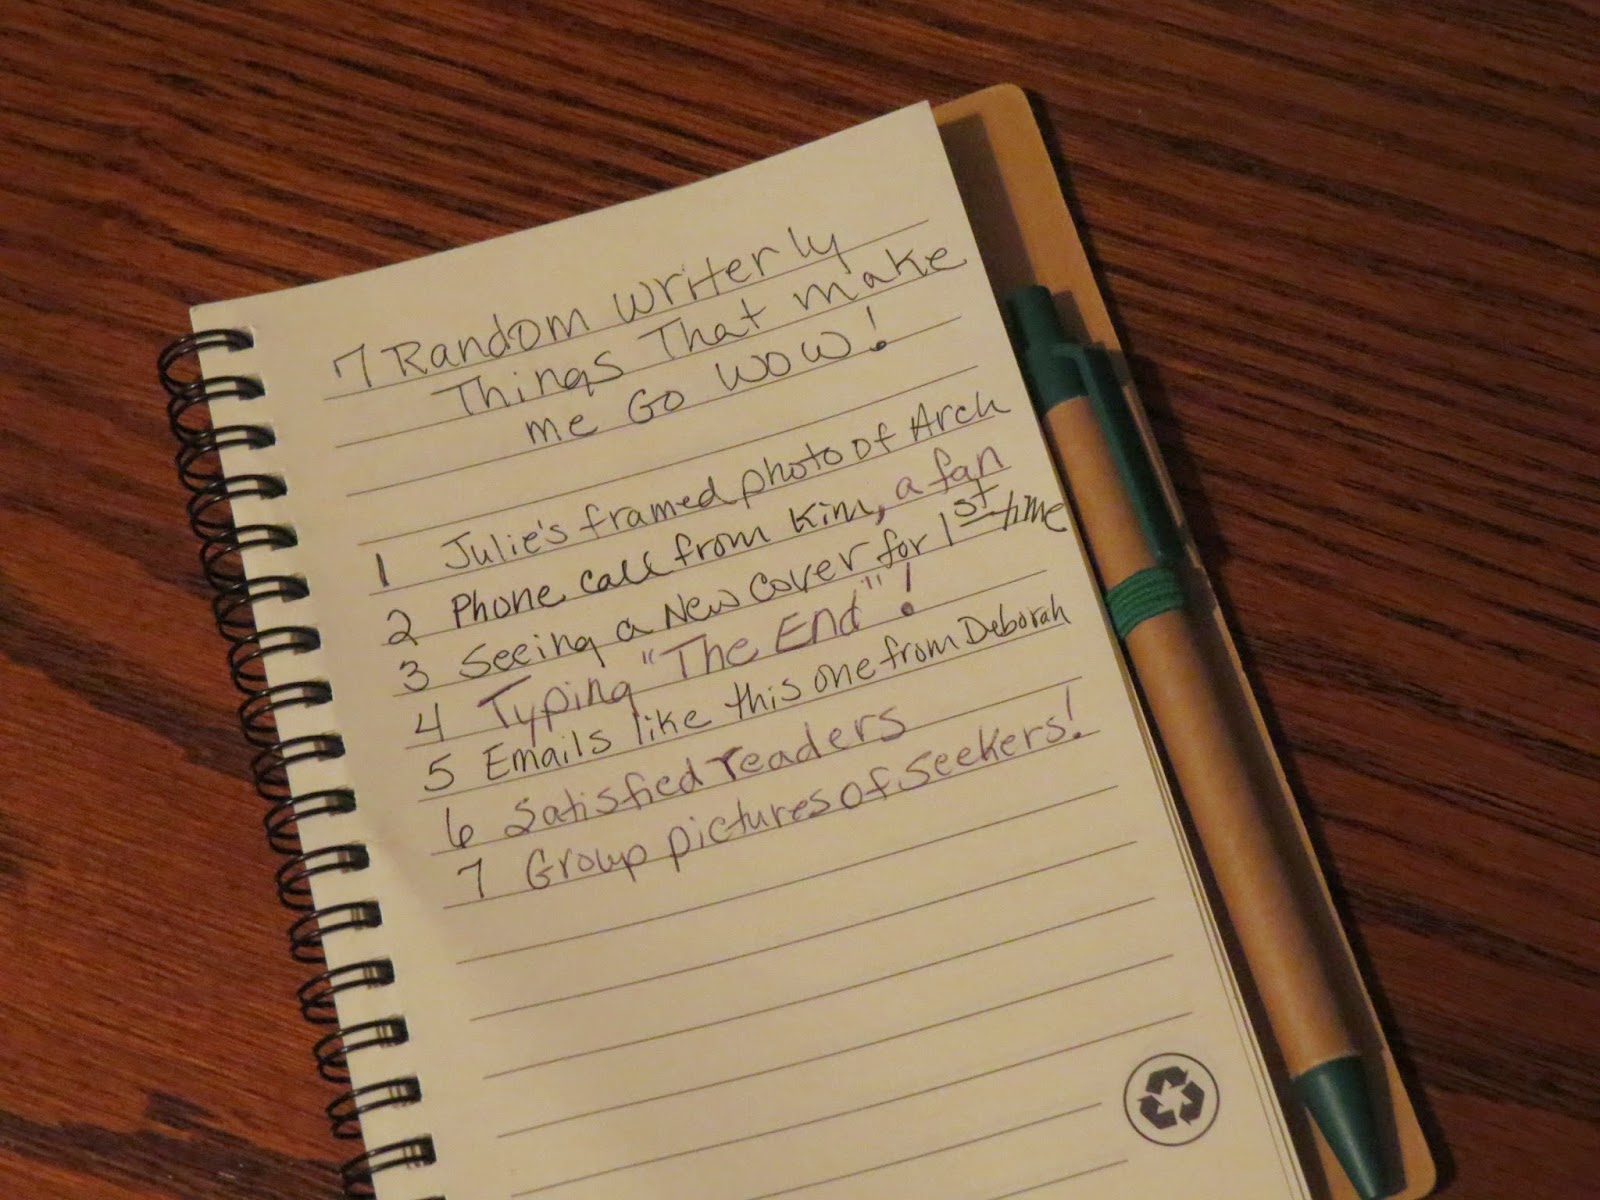 7 Random Writerly
Things That make
me Go WOW!
1 Julie's framed photo of Arch
2 Phone call from Kim, a fan
3 Seeing a New Cover for 1st time
4 Typing "The End"!
5 Emails like this one from Deborah
6 Satisfied readers
7 Group pictures of Seekers!